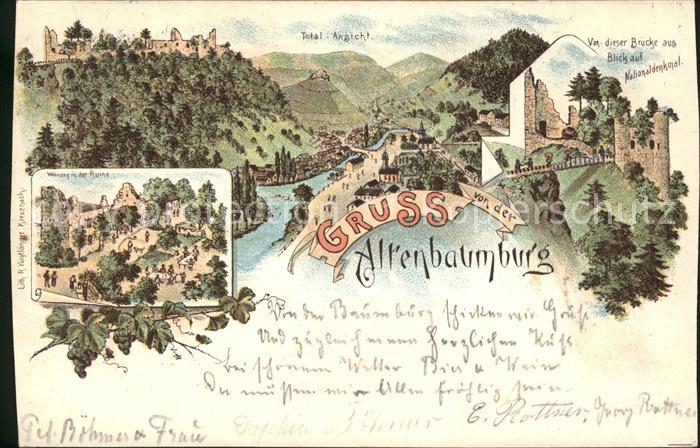 Total-Ansicht.
Von dieser Brücke aus
Blick auf
Nationaldenkmal.
in der Ruine
Lith. R. Voigtländer Kreuznach.
GRUSS
von der
Altenbaumburg
Von der Baumburg schicken wir Gruß
Und zugleich einen herzlichen Kuß
bei schönem Wetter Bier u Wein
Da müssen wir Allen fröhlig sein.
E. Rottner, Georg Rottner
Sophie Böhmer
Pet. Böhmer & Frau